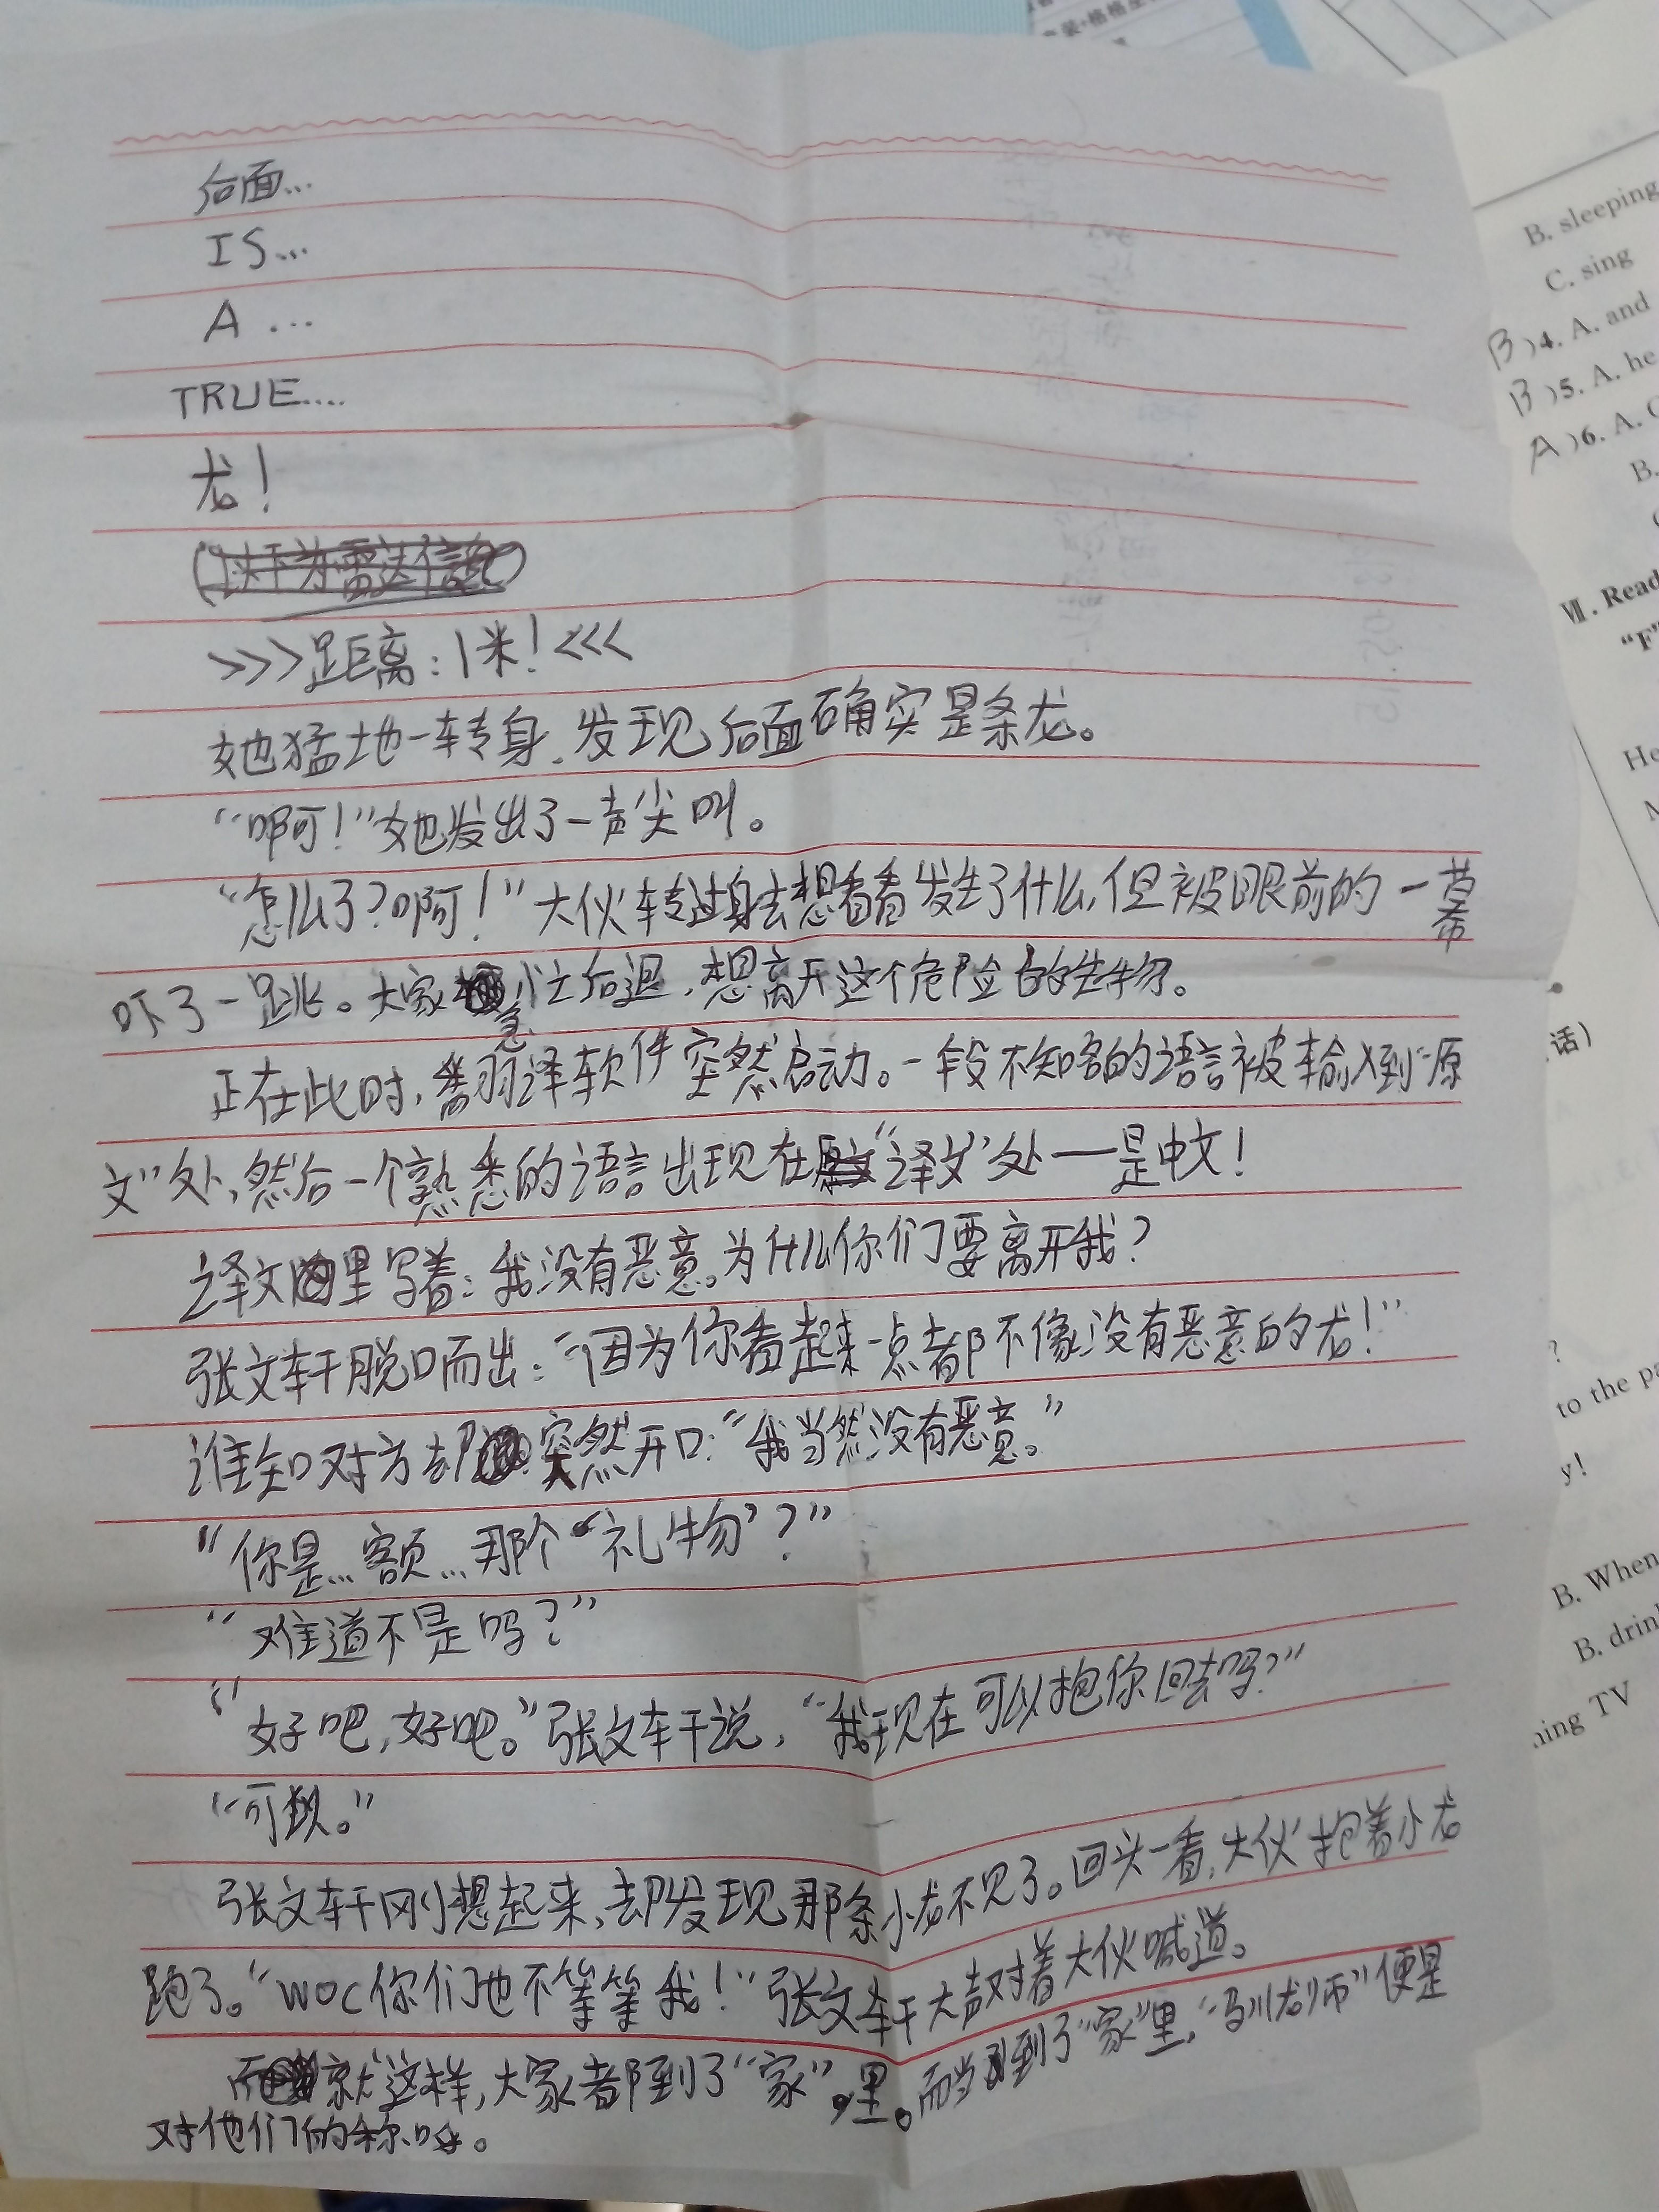 后面...
IS...
A...
TRUE....
龙！
>>>距离：1米！<<<
她猛地一转身，发现后面确实是条龙。
“啊！”她发出了一声尖叫。
“怎么了？啊！”大伙转过身去想看看发生了什么，但被眼前的一幕
吓了一跳。大家急忙后退，想离开这个危险的生物。
正在此时，翻译软件突然启动。一段不知名的语言被输入到“原
文”处，然后一个熟悉的语言出现在“译文”处——是中文！
译文里写着：我没有恶意。为什么你们要离开我？
张文轩脱口而出：“因为你看起来一点都不像没有恶意的龙！”
谁知对方却突然开口：“我当然没有恶意。”
“你是...额...那个‘礼物’？”
“难道不是吗？”
“好吧，好吧。”张文轩说，“我现在可以抱你回去吗？”
“可以。”
张文轩刚想起来，却发现那条小龙不见了。回头一看，大伙抱着小龙
跑了。“woc你们也不等等我！”张文轩大声对着大伙喊道。
就这样，大家都到了“家”里。而当到了“家”里，“驯龙师”便是
对他们的称呼。
B. sleeping
C. sing
B)4. A. and
B)5. A. he
A)6. A.
B.
Ⅶ. Read
“F”
He
话）
?
to the pa
y!
B. When
B. drin
ning TV